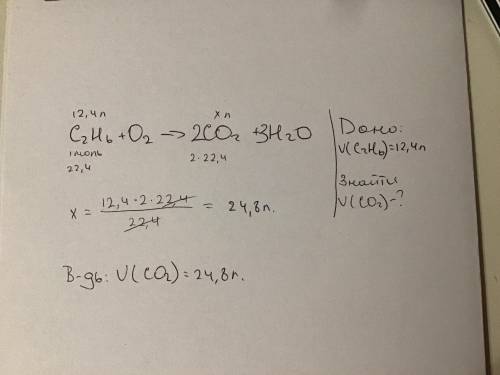 12,4л x л
C2H6 + O2 -> 2CO2 + 3H2O
1моль 2·22,4
22,4
x = 12,4·2·22,4 / 22,4 = 24,8л.
В-дь: V(CO2) = 24,8л.
Дано:
V(C2H6)=12,4л
Знайти
V(CO2)-?